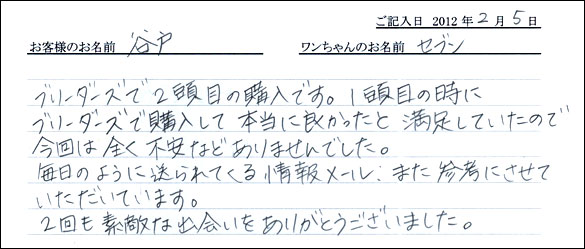 ご記入日 2012年2月5日
お客様のお名前 谷戸 ワンちゃんのお名前 セブン
ブリーダーズで2頭目の購入です。1頭目の時に
ブリーダーズで購入して本当に良かったと満足していたので
今回は全く不安などありませんでした。
毎日のように送られてくる情報メール:また参考にさせて
いただいています。
2回も素敵な出会いをありがとうございました。